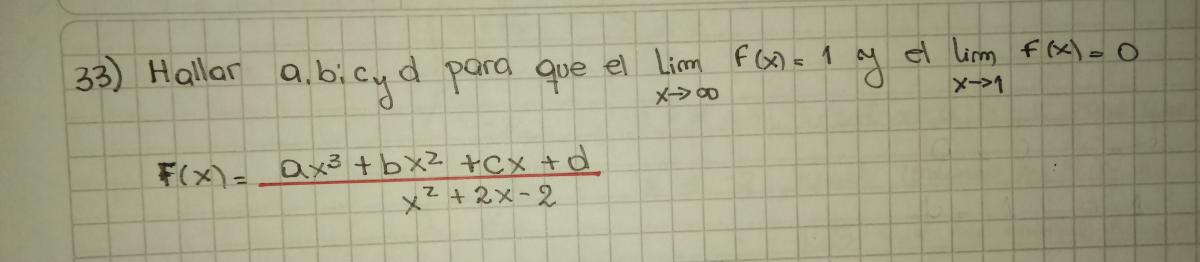 33) Hallar a,b,c y d para que el lim f(x) = 1 y el lim f(x) = 0
x→∞ x→1
F(x) = ax³ + bx² + cx + d
x² + 2x - 2